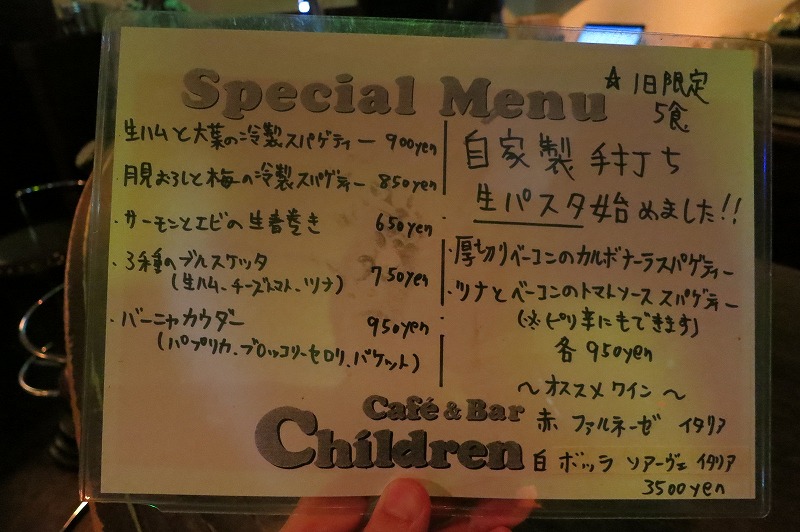 Special Menu
生ハムと大葉の冷製スパゲティー 900yen
月見おろしと梅の冷製スパゲティー 850yen
・サーモンとエビの生春巻き 650yen
・3種のブルスケッタ
(生ハム、チーズトマト、ツナ) 750yen
・バーニャカウダー 950yen
(パプリカ、ブロッコリーセロリ、バケット)
☆1日限定
5食
自家製 手打ち
生パスタ始めました!!
・厚切りベーコンのカルボナーラスパゲティー
・ツナとベーコンのトマトソース スパゲティー
(※ピリ辛にもできます)
各 950yen
〜オススメワイン〜
赤 ファルネーゼ イタリア
白 ボッラ ソアーヴェ イタリア
3500yen
Café & Bar
Children